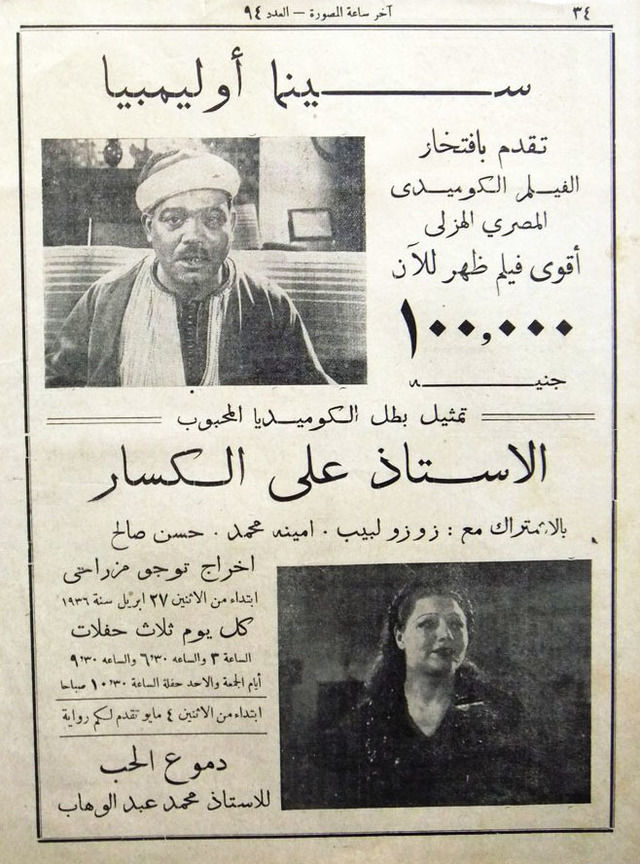 ٣٤
آخر ساعة المصورة — العدد ٩٤
سينما أوليمبيا
تقدم بافتخار
الفيلم الكوميدى
المصري الهزلى
أقوى فيلم ظهر للآن
١٠٠,٠٠٠
جنيه
تمثيل بطل الكوميديا المحبوب
الاستاذ على الكسار
بالاشتراك مع : زوزو لبيب . امينه محمد . حسن صالح
اخراج توجو مزراحى
ابتداء من الاثنين ٢٧ ابريل سنة ١٩٣٦
كل يوم ثلاث حفلات
الساعة ٣ والساعه ٦٬٣٠ والساعه ٩٬٣٠
أيام الجمعة والاحد حفلة الساعة ١٠٬٣٠ صباحا
ابتداء من الاثنين ٤ مايو تقدم لكم رواية
دموع الحب
للاستاذ محمد عبد الوهاب